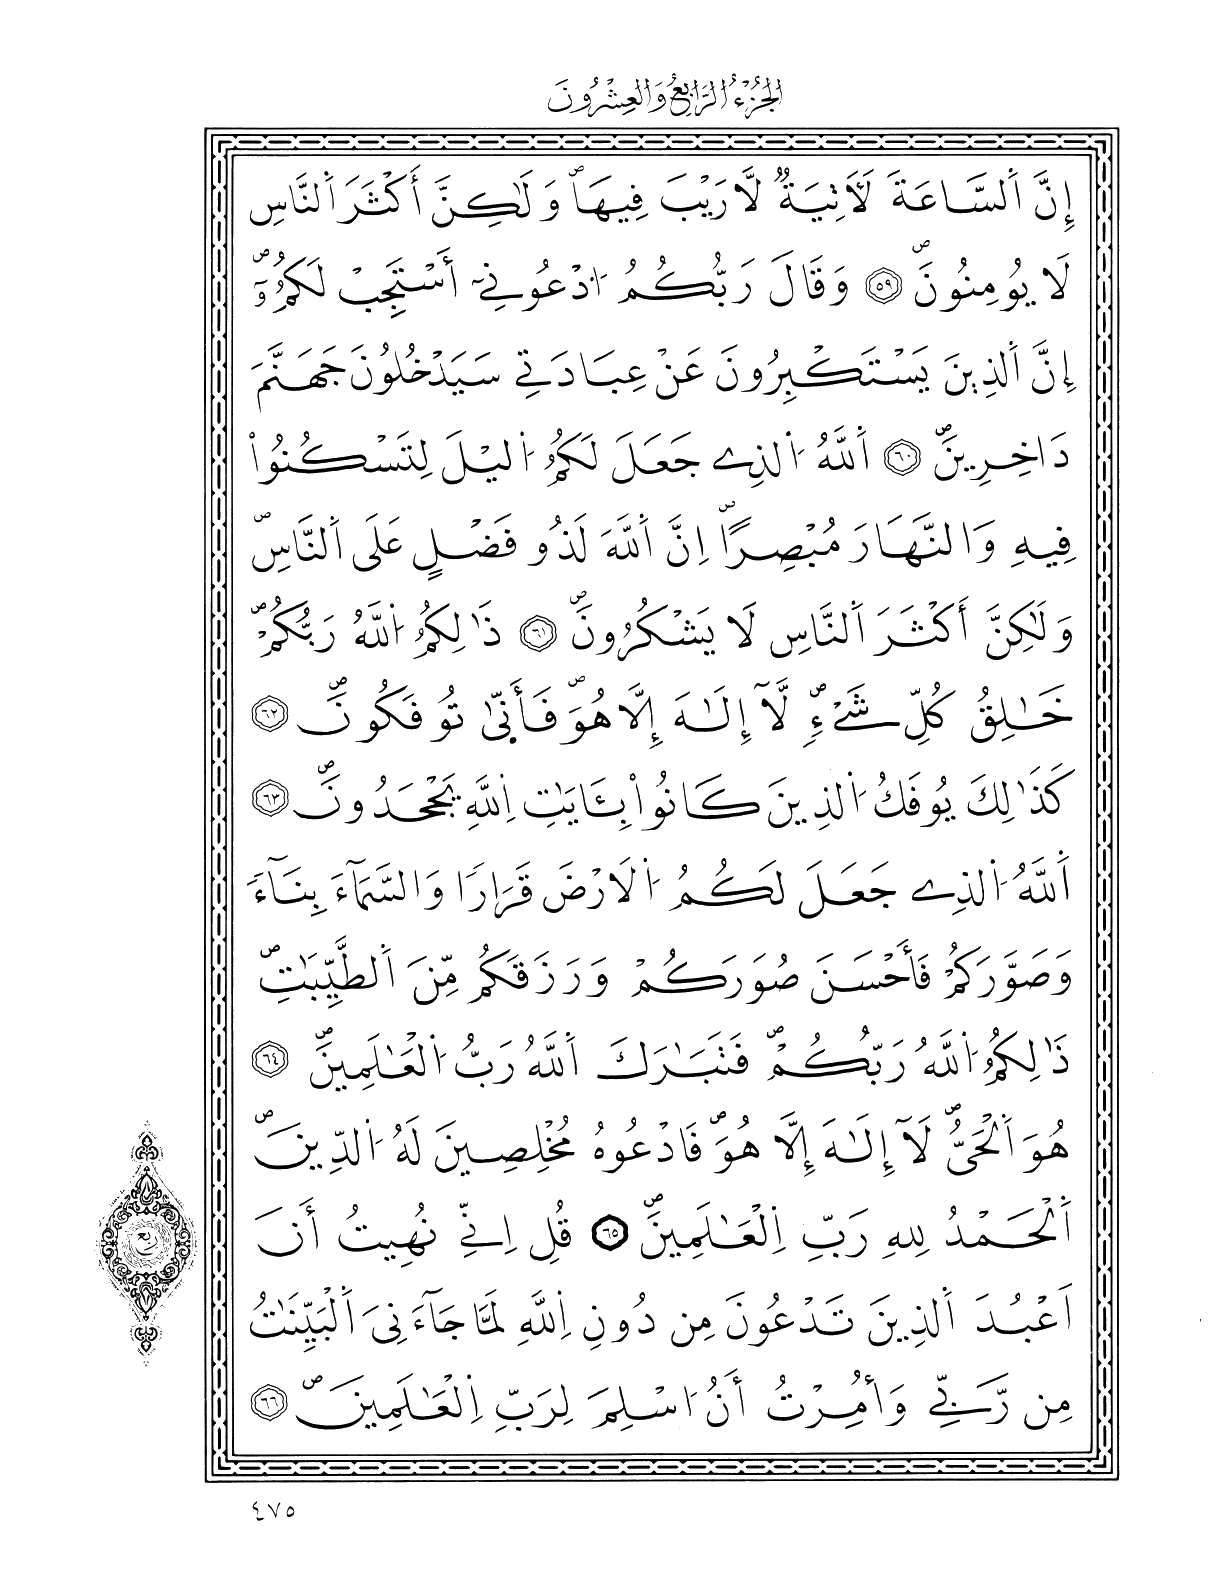 الجُزْءُ الرَّابِعُ وَالعِشْرُونَ
إِنَّ اَ۬لسَّاعَةَ لَأٓتِيَةٞ لَّا رَيْبَ فِيهَاۖ وَلَٰكِنَّ أَكْثَرَ اَ۬لنَّاسِ
لَا يُومِنُونَۖ ٥٩ وَقَالَ رَبُّكُمُ اُ۟دْعُونِےٓ أَسْتَجِبْ لَكُمُۥٓۖ
إِنَّ اَ۬لذِينَ يَسْتَكْبِرُونَ عَنْ عِبَادَتِے سَيَدْخُلُونَ جَهَنَّمَ
دَاخِرِينَۖ ٦٠ اَ۬للَّهُ اُ۬لذِے جَعَلَ لَكُمُ اُ۬ليْلَ لِتَسْكُنُواْ
فِيهِ وَالنَّهَارَ مُبْصِراًۖ اِنَّ اَ۬للَّهَ لَذُو فَضْلٍ عَلَى اَ۬لنَّاسِۖ
وَلَٰكِنَّ أَكْثَرَ اَ۬لنَّاسِ لَا يَشْكُرُونَۖ ٦١ ذَٰلِكُمُ اُ۬للَّهُ رَبُّكُمْۖ
خَٰلِقُ كُلِّ شَےْءٖۖ لَّآ إِلَٰهَ إِلَّا هُوَۖ فَأَنّ۪ىٰ تُوفَكُونَۖ ٦٢
كَذَٰلِكَ يُوفَكُ اُ۬لذِينَ كَانُواْ بِـَٔايَٰتِ اِ۬للَّهِ يَجْحَدُونَۖ ٦٣
اَ۬للَّهُ اُ۬لذِے جَعَلَ لَكُمُ اُ۬لَارْضَ قَرَاراٗ وَالسَّمَآءَ بِنَآءٗ
وَصَوَّرَكُمْ فَأَحْسَنَ صُوَرَكُمْ وَرَزَقَكُم مِّنَ اَ۬لطَّيِّبَٰتِۖ
ذَٰلِكُمُ اُ۬للَّهُ رَبُّكُمْۖ فَتَبَٰرَكَ اَ۬للَّهُ رَبُّ اُ۬لْعَٰلَمِينَۖ ٦٤
هُوَ اَ۬لْحَىُّۖ لَآ إِلَٰهَ إِلَّا هُوَۖ فَادْعُوهُ مُخْلِصِينَ لَهُ اُ۬لدِّينَۖ
اَ۬لْحَمْدُ لِلهِ رَبِّ اِ۬لْعَٰلَمِينَۖ ٦٥ قُلِ اِنِّے نُهِيتُ أَنَ
اَعْبُدَ اَ۬لذِينَ تَدْعُونَ مِن دُونِ اِ۬للَّهِ لَمَّا جَآءَنِيَ اَ۬لْبَيِّنَٰتُ
مِن رَّبِّے وَأُمِرْتُ أَنُ ا۟سْلِمَ لِرَبِّ اِ۬لْعَٰلَمِينَۖ ٦٦
ربع
٤٧٥